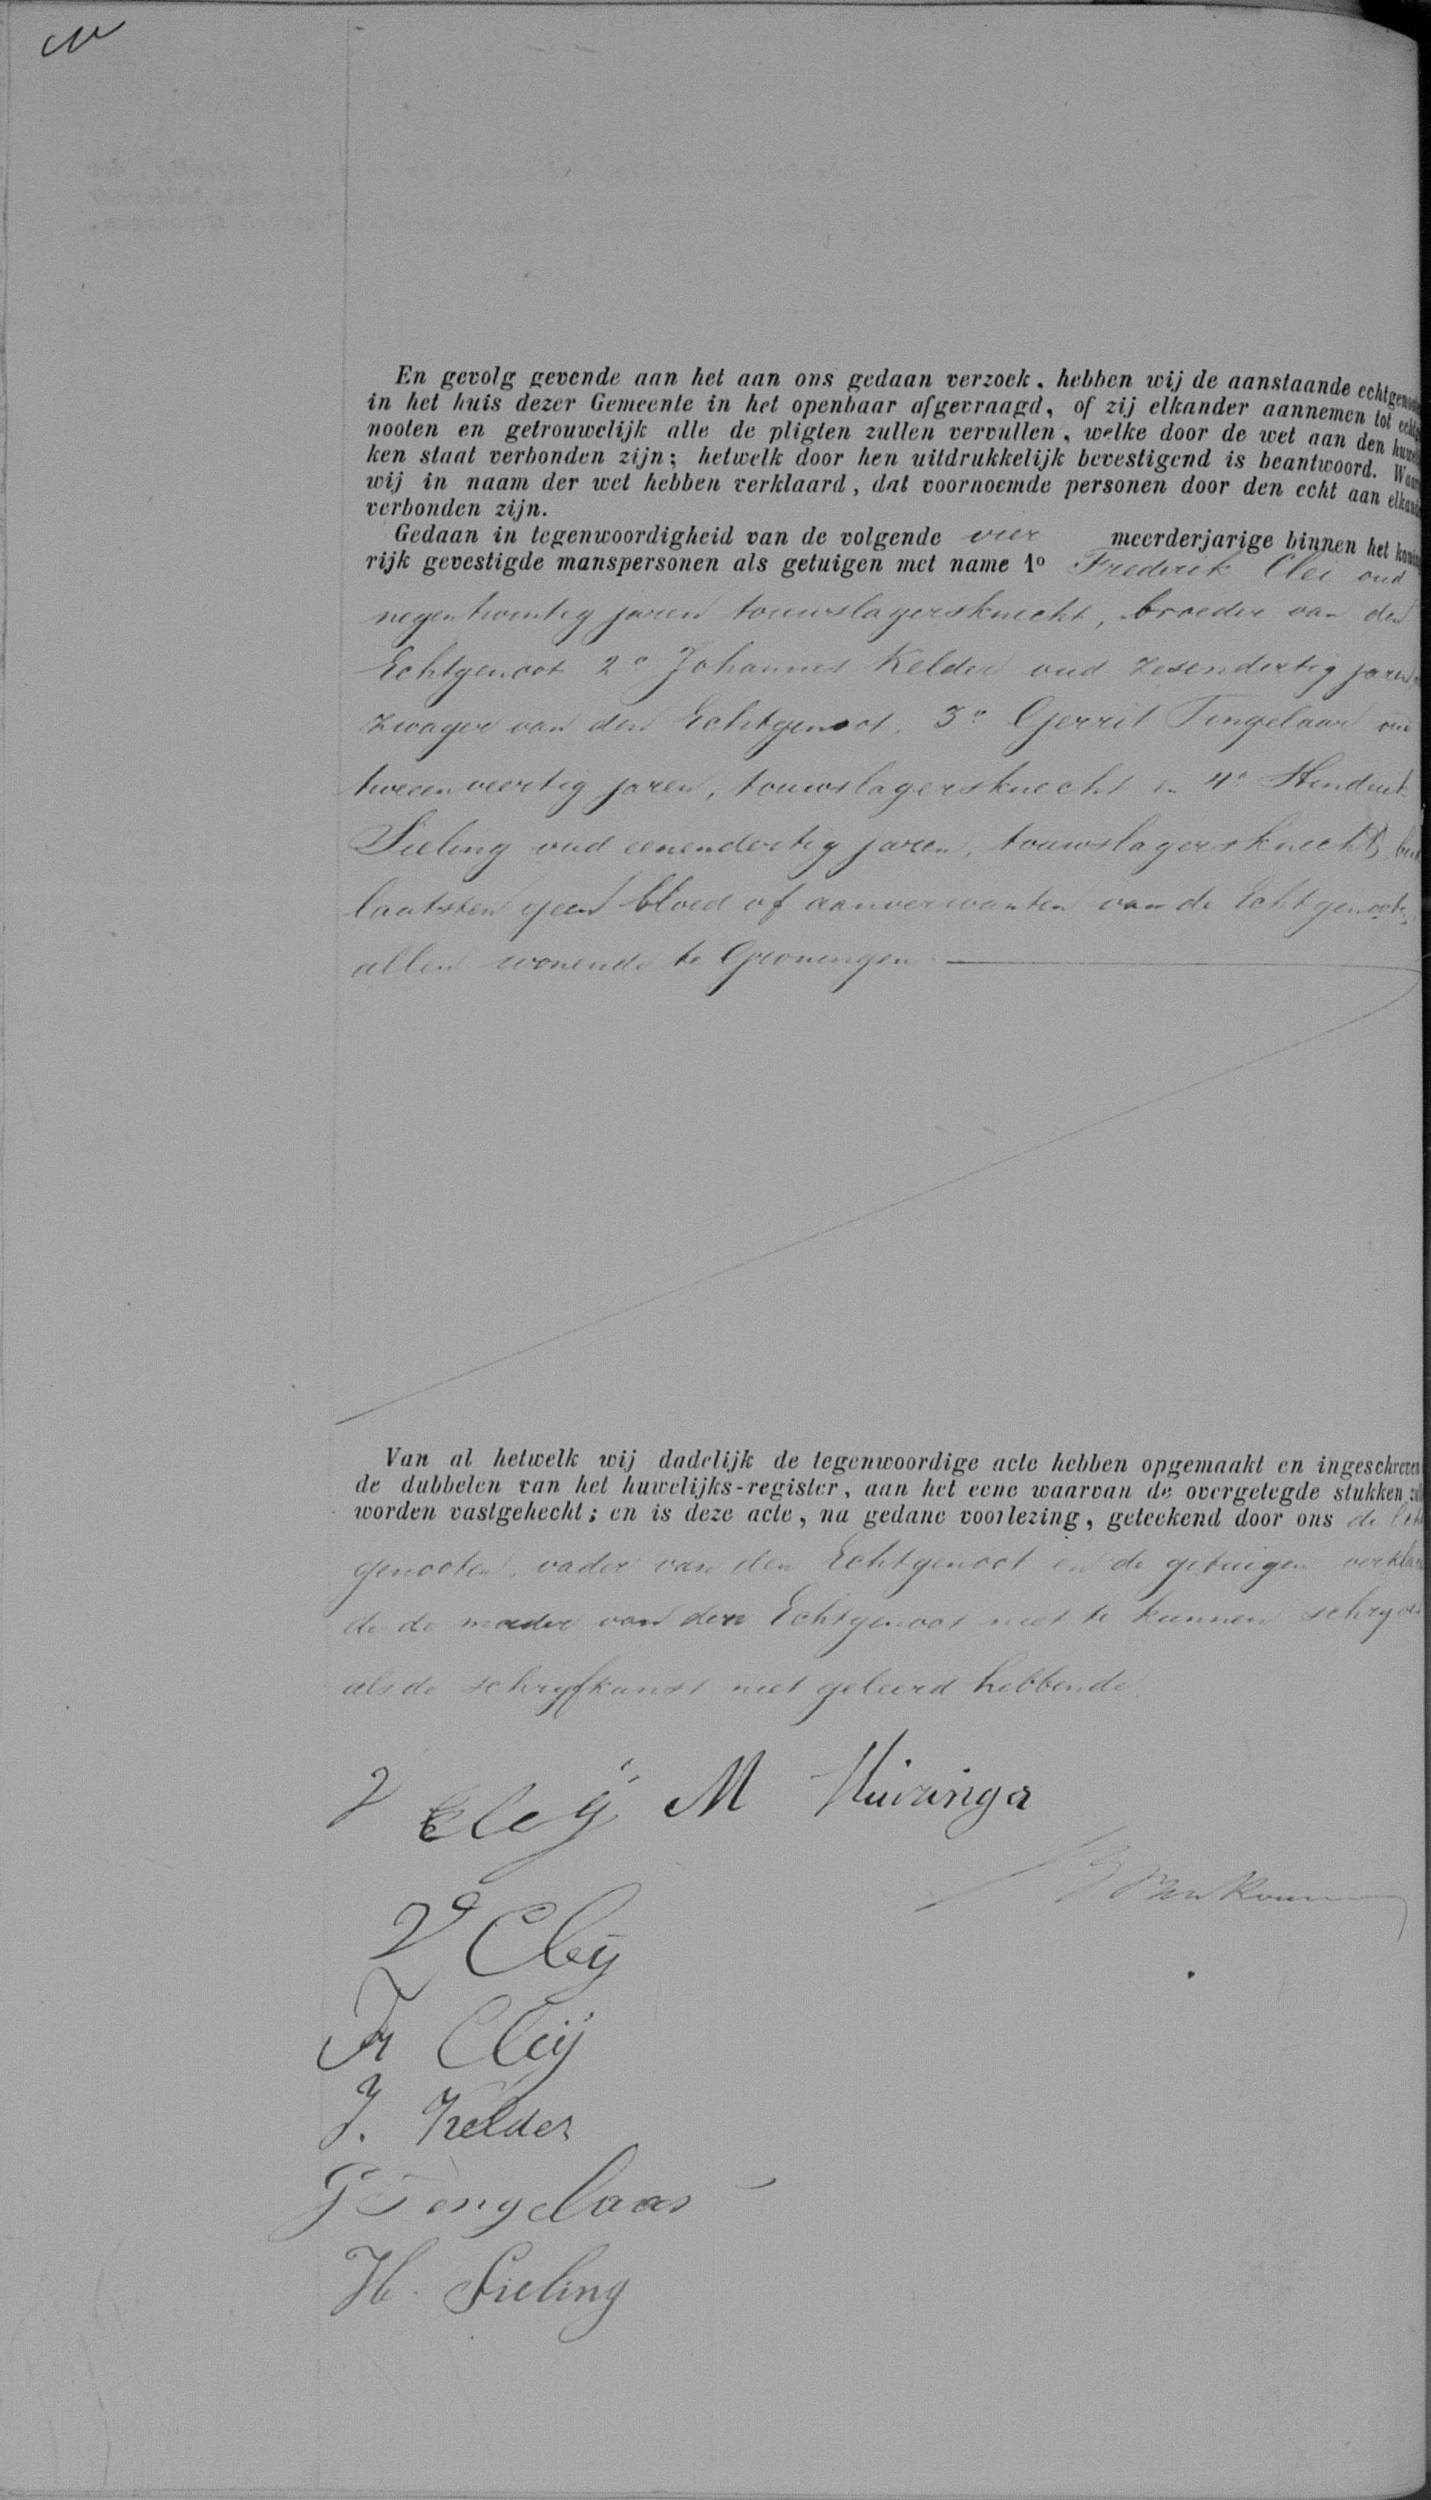 En gevolg gevende aan het aan ons gedaan verzoek, hebben wij de aanstaande echtgenoote
in het huis dezer Gemeente in het openbaar afgevraagd, of zij elkander aannemen tot echtg
nooten en getrouwelijk alle de pligten zullen vervullen, welke door de wet aan den huwel
ken staat verbonden zijn; hetwelk door hen uitdrukkelijk bevestigend is beantwoord. Waar
wij in naam der wet hebben verklaard, dat voornoemde personen door den echt aan elkand
verbonden zijn.
Gedaan in tegenwoordigheid van de volgende vier meerderjarige binnen het konin
rijk gevestigde manspersonen als getuigen met name 1o Frederik Clei oud
negentwintig jaren touwslagersknecht, broeder van den
Echtgenoot 2o Johannes Kelder oud zesendertig jaren
zwager van den Echtgenoot, 3o Gerrit Tingelaar oud
tweeenveertig jaren, touwslagersknecht en 4o Hendrik
Sieling oud eenendertig jaren, touwslagersknecht,
laatsten geen bloed of aanverwanten van de Echtgenooten
allen wonende te Groningen
Van al hetwelk wij dadelijk de tegenwoordige acte hebben opgemaakt en ingeschreven
de dubbelen van het huwelijks-register, aan het eene waarvan de overgelegde stukken zul
worden vastgehecht; en is deze acte, na gedane voorlezing, geteekend door ons de Echt
genooten, vader van den Echtgenoot en de getuigen verklaren
de de moeder van den Echtgenoot niet te kunnen schryven
als de schryfkunst niet geleerd hebbende
J Cleÿ M Huizinga
Cleÿ
Fr Cleij
J. Kelder
G Tengelaar
H. Sieling